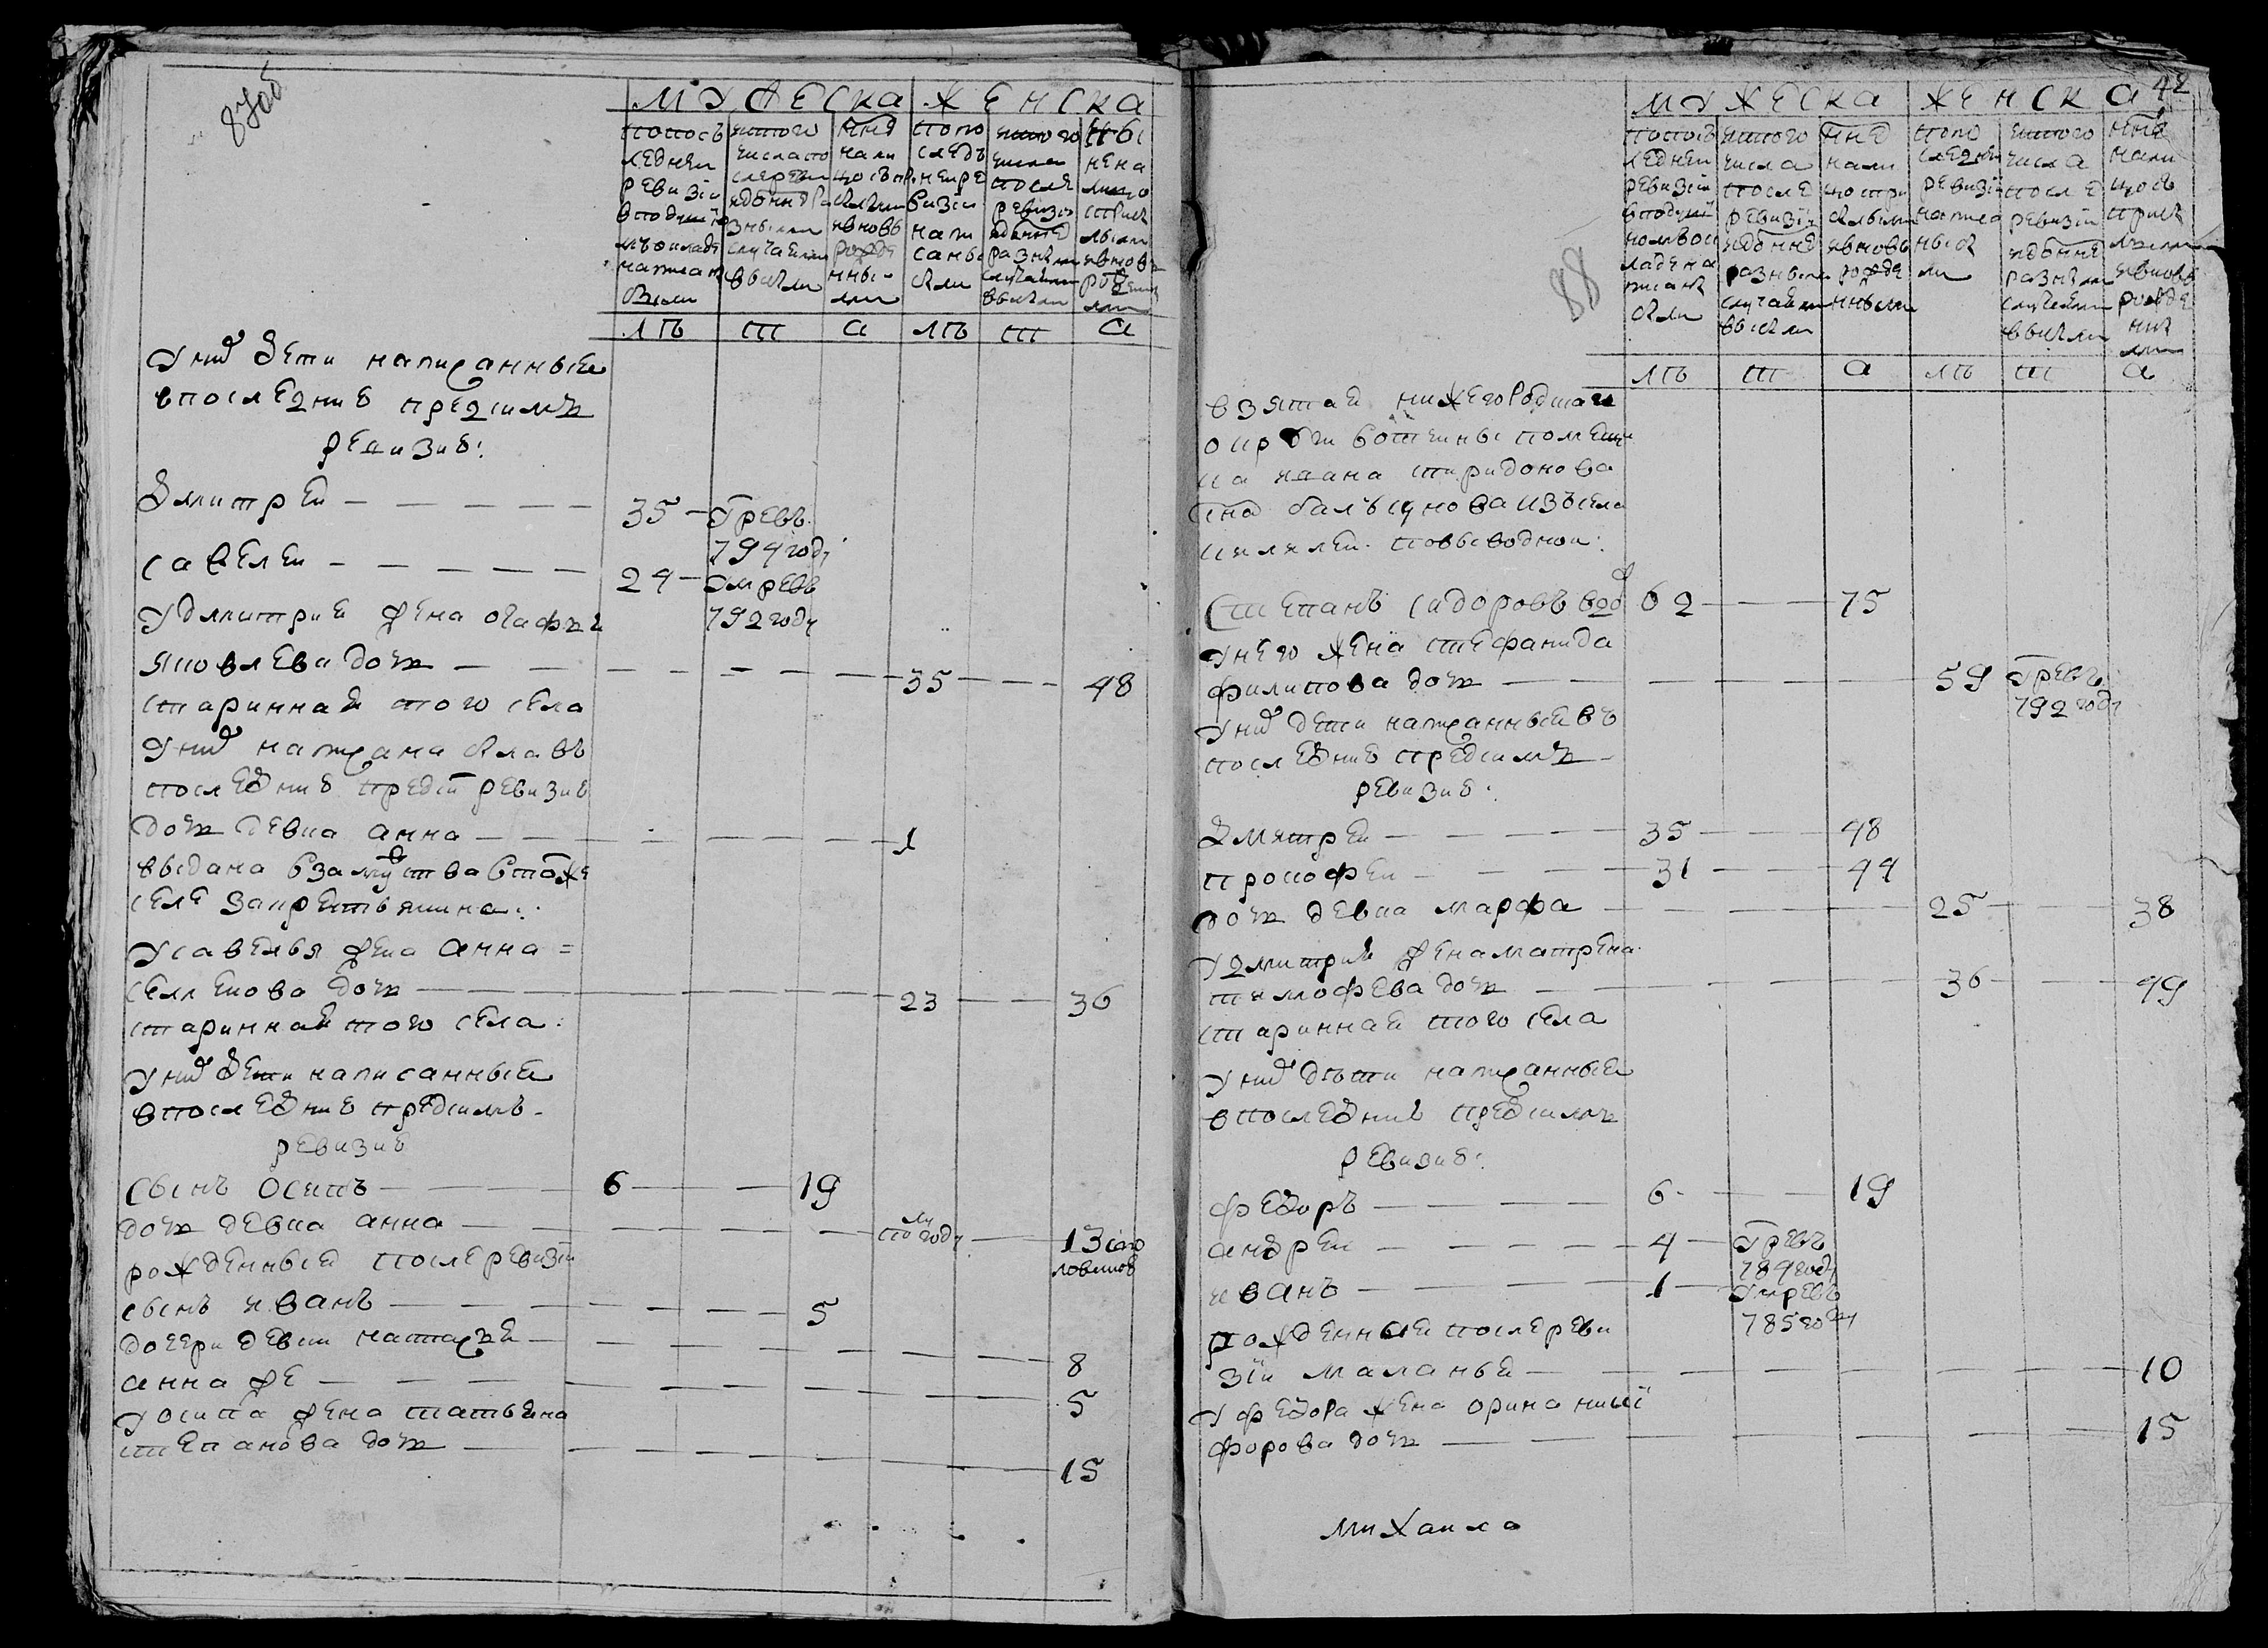 87об
МУЖЕСКА ЖЕНСКА
попось
ледней
ревизии
в подушно
мъ окладе
написан
были
ис того
числа по
сле реви
зи до ныне ра
зными
случаями
выбыли
ныне
нали
цо съ пр
ибылыми
и вновь
рожде
нны
ми
по по
следъ
ней ре
визии
напи
саны
были
ис того
числа
после
ревизи
до ныне
разными
случаями
выбыли
ны
не на
лицо
с прибы
лыми
и вновь
рожденны
ми
лѣ т а лѣ т а
У них дети написанныя
в последние пред сим
ревизие:
Дмитрей 35 Умре въ
794 году
Савелей 24 Умре въ
792 году
У Дмитрия жена Агафья
Яковлева дочь 35 48
старинная того села
У них написана была въ
последние пред сим ревизие
дочь девка Анна 1
выдана в замужства в том же
селе за крестьянина:
У Савелья жена Анна =
Семенова дочь 23 36
стариннай того села:
У них дети написанныя
в последние пред сим
ревизие
сынъ Осипъ 6 19
дочь девка Анна по году 13 с по
ловиною
рожденныя после ревизии
сынъ Иванъ 5
дочери девки Наталья 8
Анна же 5
У Осипа жена Татьяна
Степанова дочь 15
42
88
МУЖЕСКА ЖЕНСКА
попось
ледней
ревизии
в подуш
ном ок
ладе на
писаны
были
ис того
числа
после
ревизии
и до ныне
разными
случаями
выбыли
ныне
нали
цо с при
былыми
и вновь
рожде
нными
по по
следней
ревизии
написа
ны бы
ли
ис того
числа
после
ревизии
и до ныне
разными
случаями
выбыли
ныне
нали
цо съ
прибы
лыми
и вновь
рожде
нны
ми
лѣ т а лѣ т а
взятая Нижегородскаго
округи вотчины помещи
ка Ивана Спиридонова
сына из села
по выводной:
Степанъ Сидоровъ вдов 62 75
У него жена Степанида
Филипова дочь 59 Умре въ
792 году
У них дети написанныя въ
последние пред симъ
ревизие:
Дмитрей 35 48
Прокофей 31 44
дочь девка Марфа 25 38
У Дмитрия жена Матрена
Тимофеева дочь 36 49
старинная того села
У них дети написанныя
в последние пред сим
ревизие:
Федоръ 6 19
Андрей 4 Умре въ
789 году
Иванъ 1 Умре въ
785 году
рожденныя после реви
зии Маланья 10
У Федора жена Орина Ники
форова дочь 15
Михаила